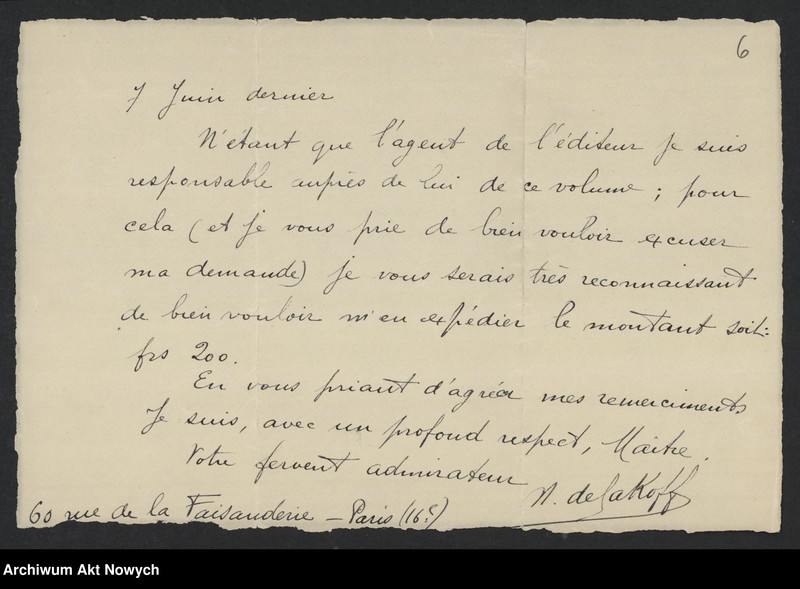 6
7 Juin dernier
N'étant que l'agent de l'éditeur je suis
responsable auprès de lui de ce volume ; pour
cela (et je vous prie de bien vouloir excuser
ma demande) je vous serais très reconnaissant
de bien vouloir m'en expédier le montant soit :
frs 200.
En vous priant d'agréer mes remerciments
Je suis, avec un profond respect, Maître.
Votre fervent admirateur
N. de
60 rue de la Faisanderie – Paris (16e)
Archiwum Akt Nowych